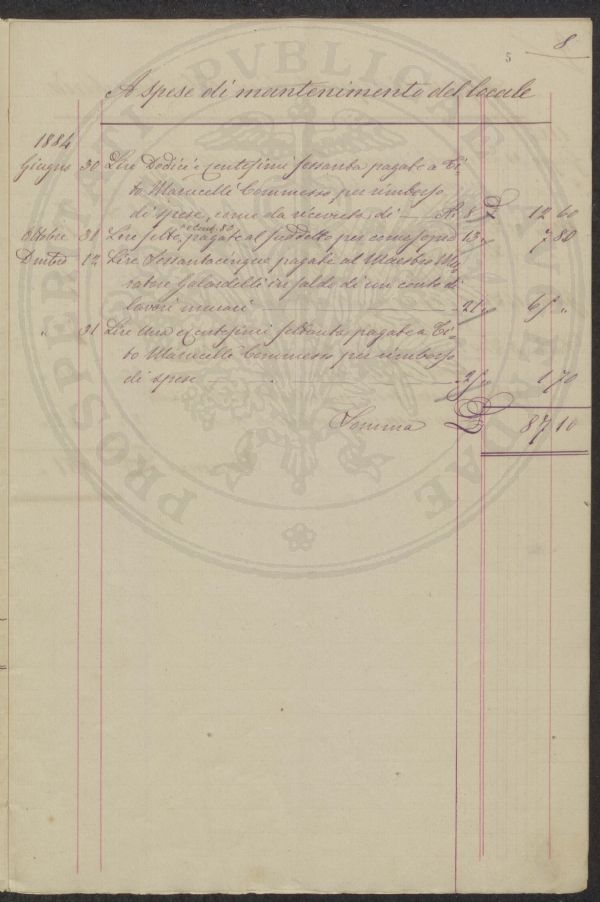 8
5
A spese di mantenimento del locale
1884
Giugno 30 Lire Dodici e centesimi sessanta pagate a Ti-
to Marucelli Commesso per rimborso
di spese, come da ricevuta, di — N. 8 £ 12 60
Ottobre 31 Lire sette, e cent. 80 pagate al suddetto per come sopra 13 " 7 80
12 Lire Sessantacinque pagate al Maestro Mu-
ratore Galardelli in saldo di un conto di
lavori murari — 21 " 65 "
" 31 Lire Una e centesimi settanta pagate a Ti-
to Marucelli Commesso per rimborso
di spese — " 1 70
Somma £ 87 10
PROSPERITATI PVBLICAE AVGENDAE